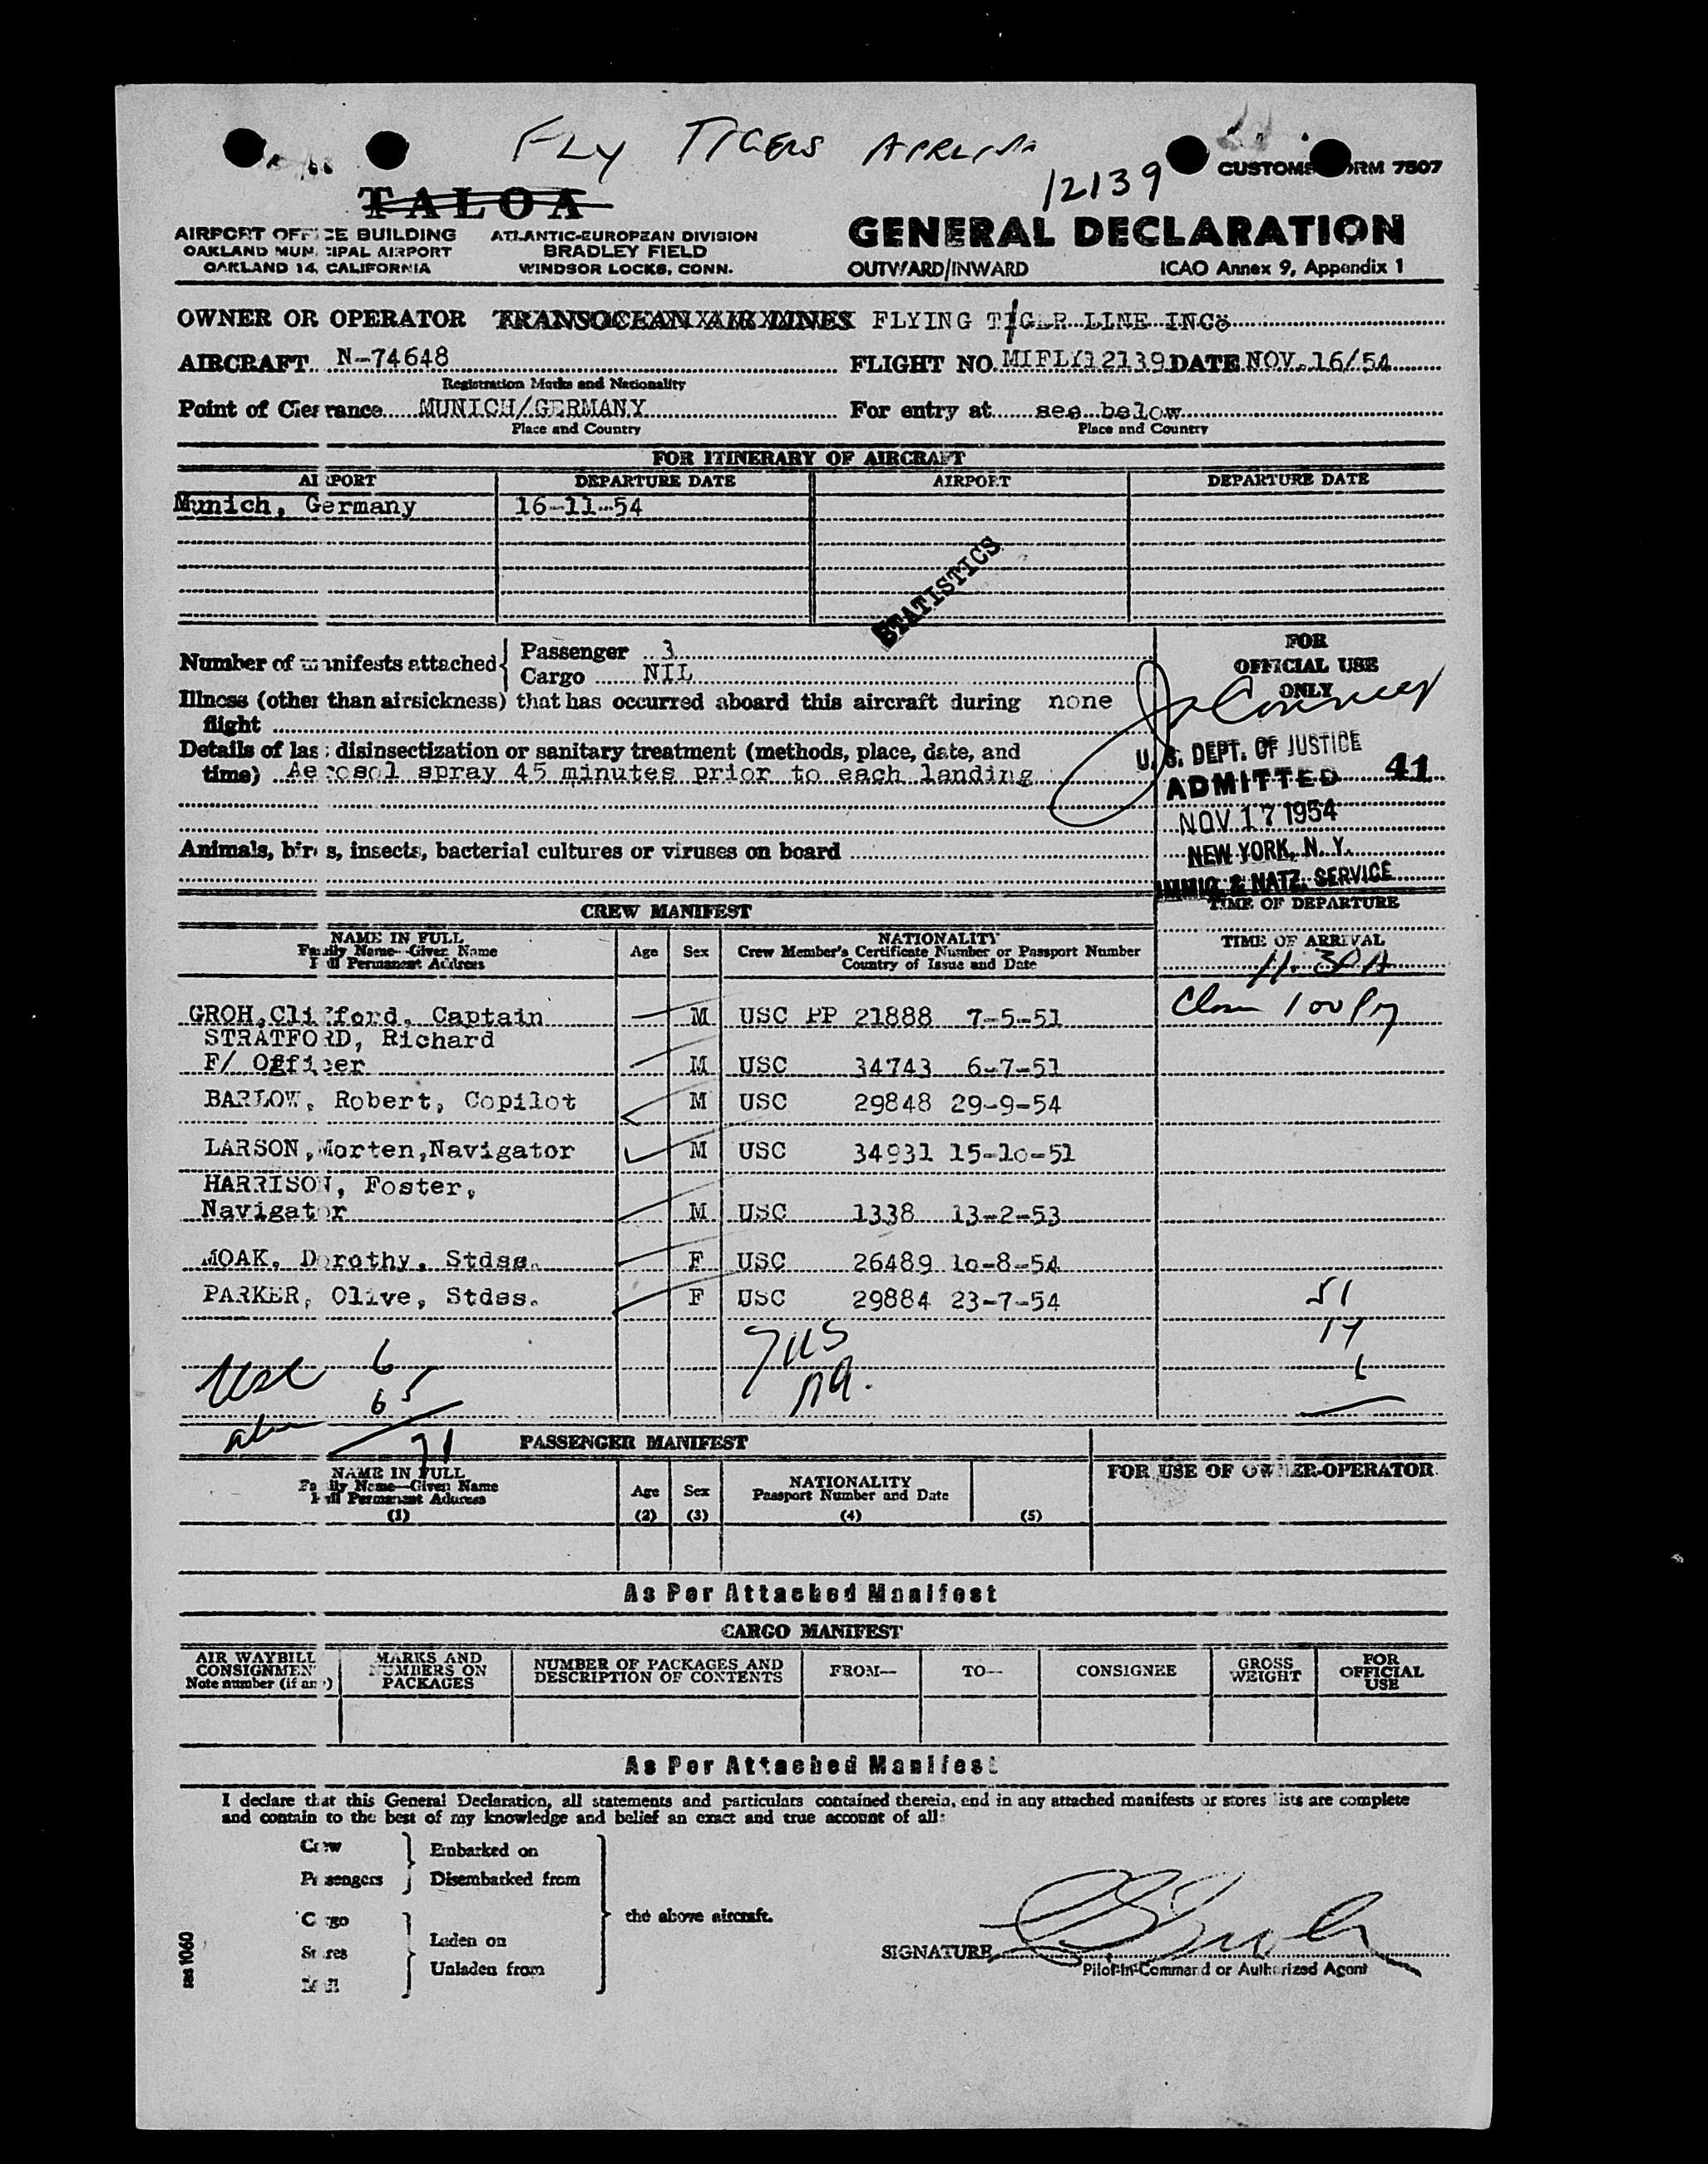 FLY TIGERS
12139
CUSTOMS FORM 7507
TALOA
AIRPORT OFFICE BUILDING
OAKLAND MUNICIPAL AIRPORT
OAKLAND 14, CALIFORNIA
ATLANTIC-EUROPEAN DIVISION
BRADLEY FIELD
WINDSOR LOCKS, CONN.
GENERAL DECLARATION
OUTWARD/INWARD
ICAO Annex 9, Appendix 1
OWNER OR OPERATOR TRANSOCEAN AIR LINES FLYING TIGER LINE INC.
AIRCRAFT N-74648 FLIGHT NO. MIFLY12139 DATE NOV. 16/54
Registration Marks and Nationality
Point of Clearance MUNICH/GERMANY For entry at see below
Place and Country Place and Country
FOR ITINERARY OF AIRCRAFT
AIRPORT DEPARTURE DATE AIRPORT DEPARTURE DATE
Munich, Germany 16-11-54
STATISTICS
Number of manifests attached Passenger 3
Cargo NIL
Illness (other than airsickness) that has occurred aboard this aircraft during none
flight
Details of last disinsectization or sanitary treatment (methods, place, date, and
time) Aerosol spray 45 minutes prior to each landing
Animals, birds, insects, bacterial cultures or viruses on board
FOR
OFFICIAL USE
ONLY
U. S. DEPT. OF JUSTICE
ADMITTED 41
NOV 17 1954
NEW YORK, N. Y.
IMMIG. & NATZ. SERVICE
TIME OF DEPARTURE
TIME OF ARRIVAL
CREW MANIFEST
NAME IN FULL
Family Name—Given Name
Full Permanent Address
Age
Sex
NATIONALITY
Crew Member's Certificate Number or Passport Number
Country of Issue and Date
GROH,Clifford, Captain M USC PP 21888 7-5-51
STRATFORD, Richard
F/ Officer M USC 34743 6-7-51
BARLOW, Robert, Copilot M USC 29848 29-9-54
LARSON,Morten,Navigator M USC 34931 15-10-51
HARRISON, Foster,
Navigator M USC 1338 13-2-53
MOAK, Dorothy, Stdss. F USC 26489 10-8-54
PARKER, Olive, Stdss. F USC 29884 23-7-54
51
17
6
7 US
USC 6
65
71
PASSENGER MANIFEST
NAME IN FULL
Family Name—Given Name
Full Permanent Address
(1)
Age
(2)
Sex
(3)
NATIONALITY
Passport Number and Date
(4)
(5)
FOR USE OF OWNER-OPERATOR
As Per Attached Manifest
CARGO MANIFEST
AIR WAYBILL
CONSIGNMENT
Note number (if any)
MARKS AND
NUMBERS ON
PACKAGES
NUMBER OF PACKAGES AND
DESCRIPTION OF CONTENTS
FROM—
TO—
CONSIGNEE
GROSS
WEIGHT
FOR
OFFICIAL
USE
As Per Attached Manifest
I declare that this General Declaration, all statements and particulars contained therein, and in any attached manifests or stores lists are complete
and contain to the best of my knowledge and belief an exact and true account of all:
Crew
Passengers
Embarked on
Disembarked from
Cargo
Stores
Mail
Laden on
Unladen from
the above aircraft.
SIGNATURE
Pilot-in-Command or Authorized Agent
sas 1060